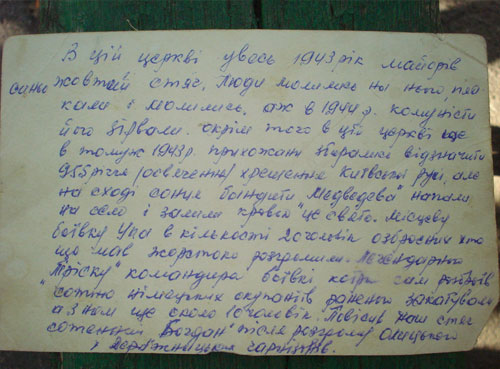 В цій церкві увесь 1943 рік майорів
синьо жовтий стяг, Люди молились на нього, пла
кали і молились, аж в 1944 р. комуністи
його зірвали. окрім того в цій церкві ще
в тому ж 1943 р. прихожани збирались відзначити
955 річчя (освячення) хрещення Київської Русі, але
на сході сонця бандити Медведєва" напали
на село і залили кровью" це свято. Місцеву
боївку Упа в кількості 20 чоловік озброєних хто
що мав жорстоко розгромили. Легендарного
Тріску" командира боївкі котрий сам розігнав
сотню німецьких окупантів раненого закатували
а з ним ще около 10 чоловік. Повісив наш стяг
сотенний Богдан" після розгрому Олицького
і гарнізонів.